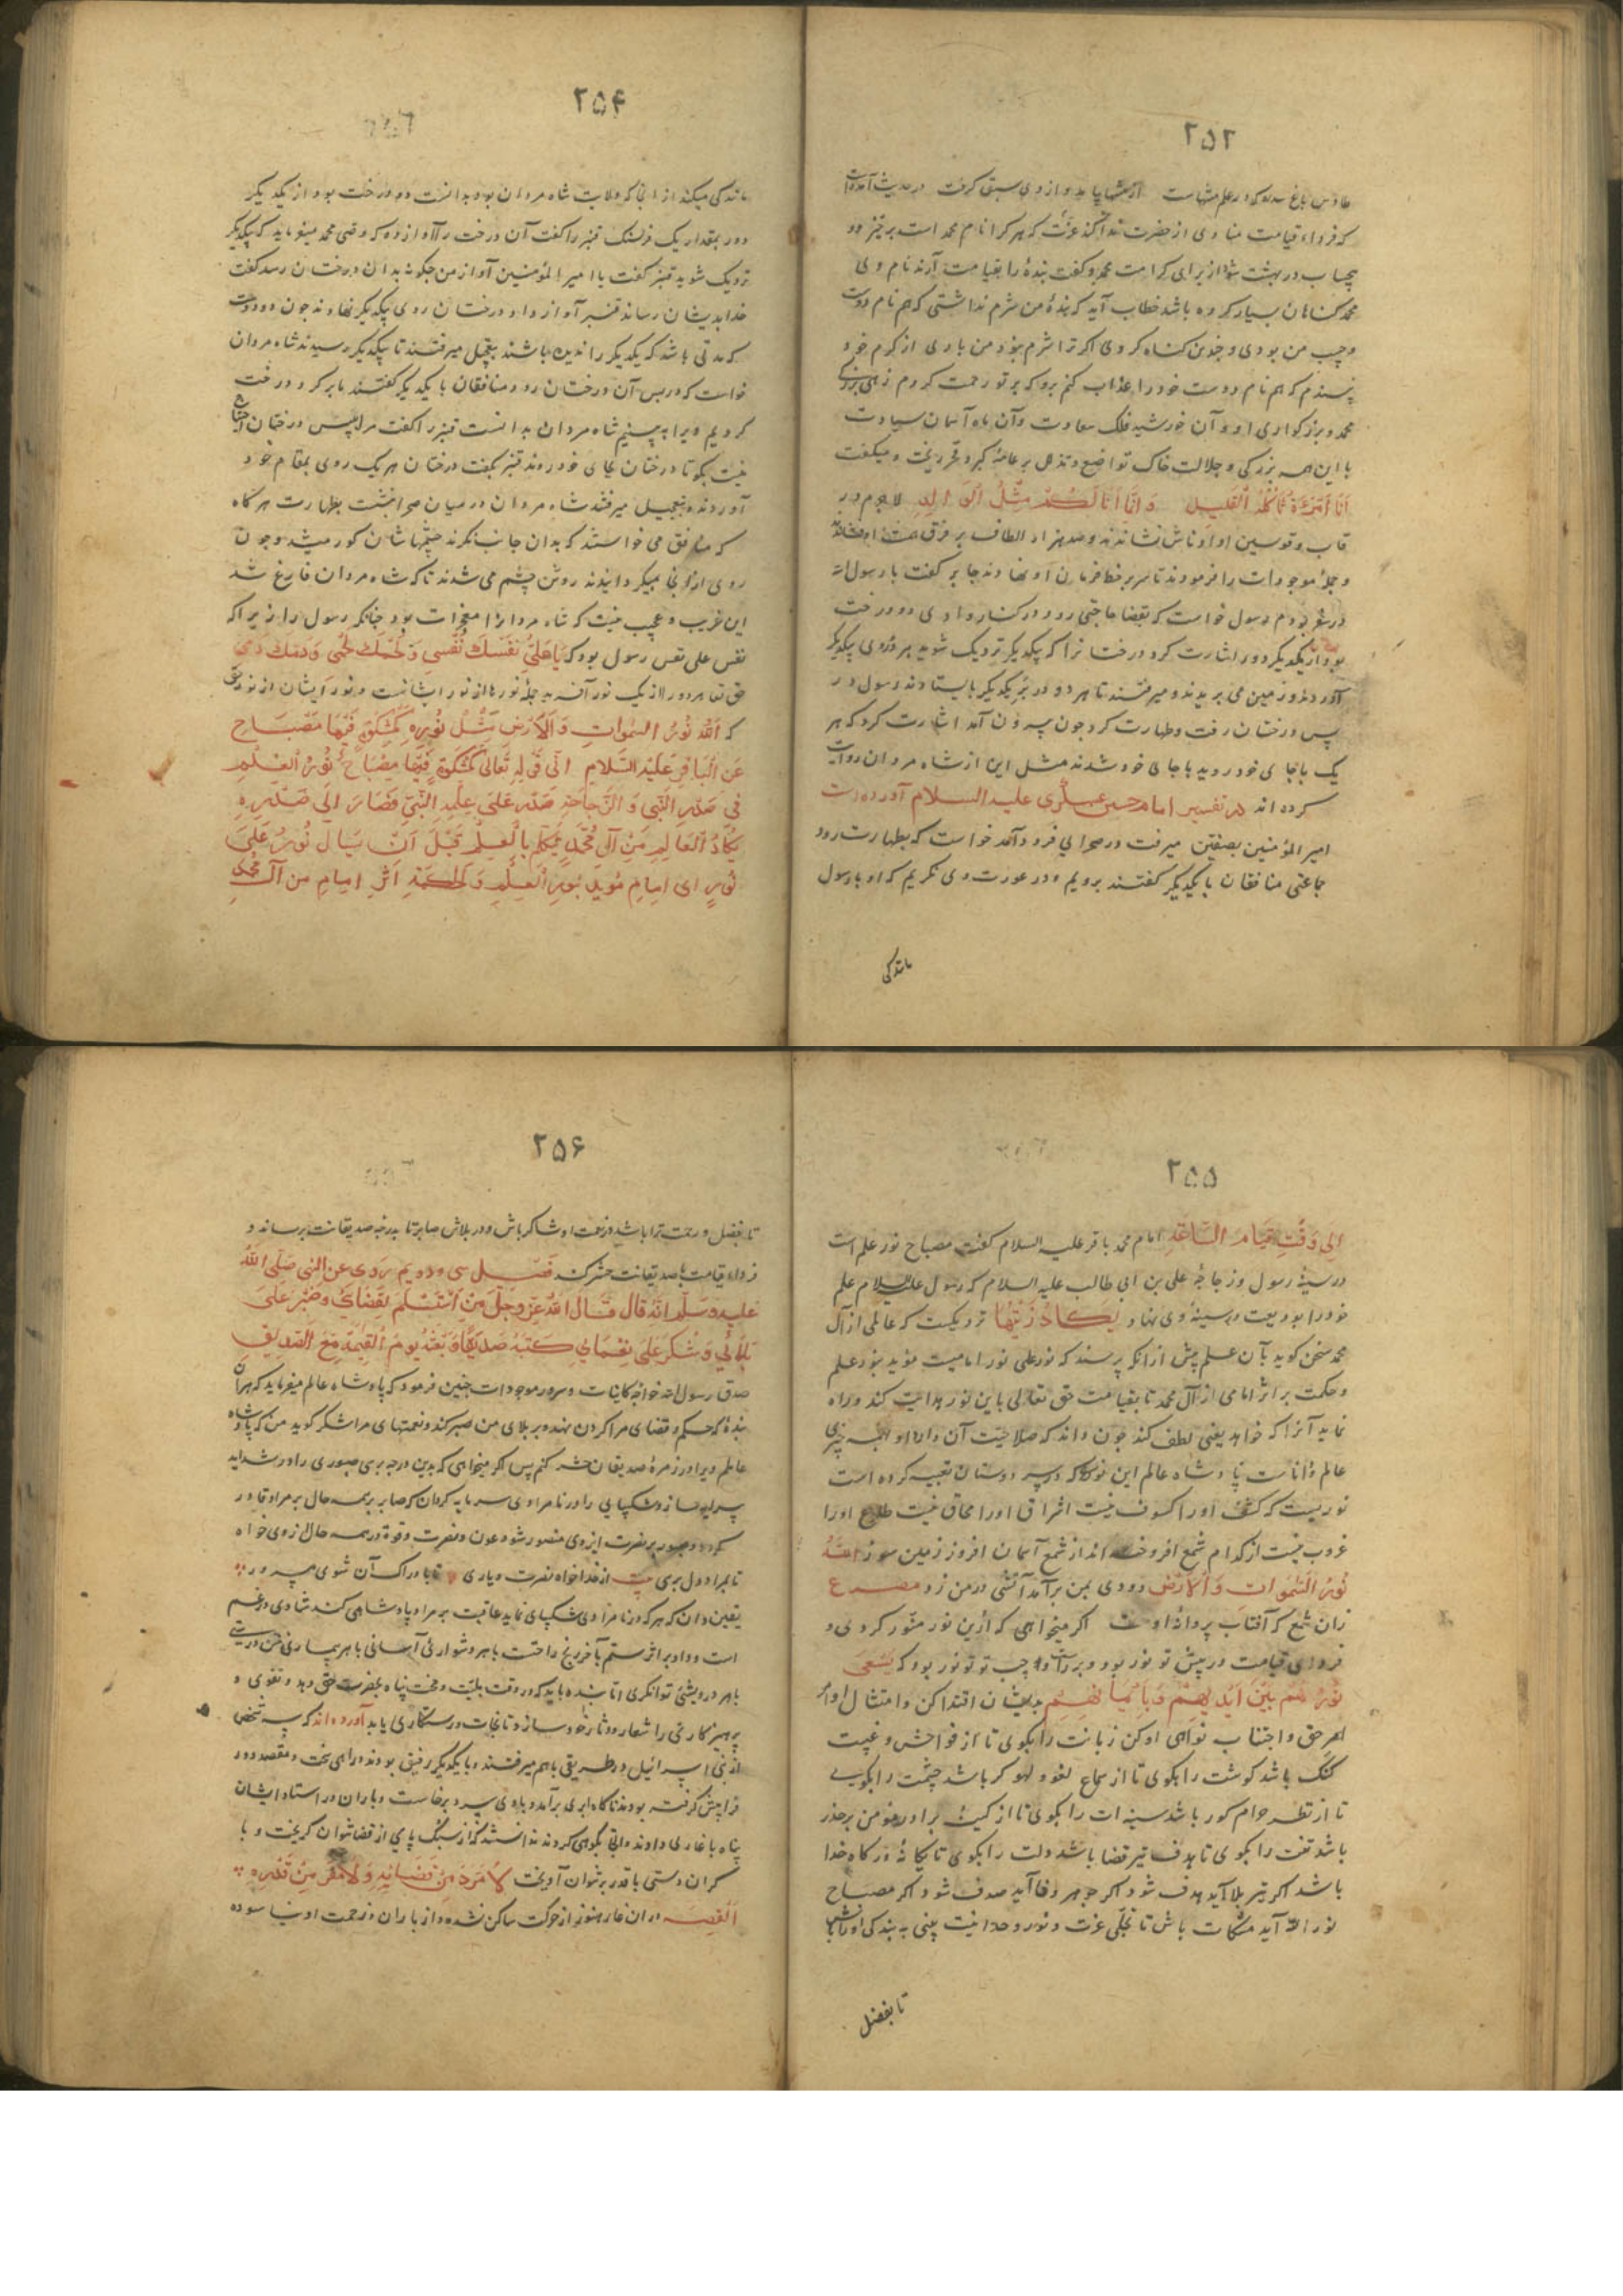 ۲۵۳
که فردا قیامت منادی از حضرت ندا کند که هر کرا نام محمد است برخیزد و
در بهشت شو از برای کرامت محمد و گفت بنده را بقیامت آرند نام وی
محمد گناهان بسیار کرده باشد خطاب آید که بنده من شرم نداشتی که هم نام دوست
من بودی و چندین گناه کردی اکر ترا شرم نبود من باری از کرم خود
پسندم که هم نام دوست خود را عذاب کنم برو که بر تو رحمت کردم زهی بزرگی
محمد و بزرکواری او و آن خورشید فلک سعادت و آن ماه آسمان سیادت
با این همه بزرکی و جلالت خاک تواضع و تذلل بر کبر و فخر ریخت و میکفت
وَ اِنَّمَا اَنَا لَكُمْ مِثْلُ الْوَالِدِ لاجرم در
قاب و قوسین او ادناش نشاندند و صد هزار الطاف بر فرق
و جملهٔ موجودات را فرمودند تا سر بر خط فرمان او نهادند جابر کفت با رسول الله
در سفر بودم رسول خواست که بقضا حاجتی رود در کنار وادی دو درخت
بود از یکدیکر دور اشارت کرد درختانرا که بیکدیکر نزدیک شوید هر دو روی بیکدیکر
آوردند و زمین می بریدند و میرفتند تا هر دو در بر یکدیکر بایستادند رسول در
پس درختان رفت و طهارت کرد چون بیرون آمد اشارت کرد که هر
یک با جای خود روید با جای خود شدند مثل این از شاه مردان روایت
کرده اند در تفسیر امام حسن عسکری علیه السلام آورده است
امیر المؤمنین بصفین میرفت در صحرایی فرود آمد خواست که بطهارت رود
جماعتی منافقان با یکدیکر کفتند برویم و در عورت وی نکریم که او با رسول
مانندکی
۲۵۴
مانندکی میکند از آنجا که ولایت شاه مردان بود بدانست دو درخت بود از یکدیکر
دور بمقدار یک فرسنک قنبر را کفت آن درخت را آواز ده که وصی محمد میفرماید که بیکدیکر
نزدیک شوید قنبر کفت یا امیر المؤمنین آواز من چکونه بدان درختان رسد کفت
خدا بدیشان رساند قنبر آواز داد درختان روی بیکدیکر نهادند چون دو دوست
که مدتی باشد که یکدیکر را ندیده باشند بتعجیل میرفتند تا بیکدیکر رسیدند شاه مردان
خواست که در پس آن درختان رود منافقان با یکدیکر کفتند ما بر کرد درخت
کردیم و یرا به بینیم شاه مردان بدانست قنبر را کفت مرا بپس درختان احتیاج
نیست بکو تا درختان بجای خود روند قنبر بکفت درختان هر یک روی بمقام خود
آوردند و بتعجیل میرفتند شاه مردان در میان صحرا بنشست بطهارت هر گاه
که منافق می خواستند که بدان جانب نکرند چشمهاشان کور میشد و چون
روی از آنجا میکردانیدند روشن چشم می شدند تا که شاه مردان فارغ شد
این غریب و عجیب نیست که شاه مردانرا معجزات بود چنانکه رسول را زیرا که
نفس علی نفس رسول بود که یَا عَلِیُّ نَفْسُكَ نَفْسِی وَ لَحْمُكَ لَحْمِی وَ دَمُكَ دَمِی
حق تعا هر دو را از یک نور آفرید جملهٔ نورها از نور ایشانست و نور ایشان از نور حق
که اَللهُ نُورُ السَّمٰوَاتِ وَ الْاَرْضِ مَثَلُ نُورِهِ كَمِشْكٰوةٍ فِیهَا مِصْبَاحٌ
عَنِ الْبَاقِرِ عَلَیْهِ السَّلَامِ اِلٰی قَوْلِهِ تَعَالٰی كَمِشْكٰوةٍ فِیهَا مِصْبَاحٌ نُورُ الْعِلْمِ
فِی صَدْرِ النَّبِیِّ وَ الزُّجَاجَةِ صَدْرِ عَلِیٍّ عِلْمِ النَّبِیِّ فَصَارَ اِلٰی صَدْرِهِ
یَكَادُ الْعَالِمِ مِنْ آلِ مُحَمَّدٍ یَتَكَلَّمُ بِالْعِلْمِ قَبْلَ اَنْ یُسْاَلَ نُورٌ عَلٰی
نُورٍ ای اِمَامٍ مُؤَیَّدٍ بِنُورِ الْعِلْمِ وَ الْحِكْمَةِ اَثَرِ اِمَامٍ مِنْ آلِ مُحَمَّدٍ
۲۵۵
اِلٰی وَقْتِ قِیَامِ السَّاعَةِ امام محمد باقر علیه السلام کفت مصباح نور علم است
در سینهٔ رسول و زجاجهٔ علی بن ابی طالب علیه السلام که رسول علیه السلام علم
خود را بودیعت در سینهٔ وی نهاد یَكَادُ زَیْتُهَا نزدیکست که عالمی از آل
محمد سخن کوید بآن علم پیش از آنکه پرسند که نور علی نور امامیست مؤید بنور علم
و حکمت بر اثر امامی از آل محمد تا بقیامت حق تعالی باین نور هدایت کند و راه
نماید آنرا که خواهد یعنی لطف کند چون داند که صلاحیت آن دارد او بهمه چیزی
عالم و داناست پادشاه عالم این نور که در سر دوستان تعبیه کرده است
نوریست که کشف او را کسوف نیست اشراق او را محاق نیست طلوع او را
غروب نیست از کدام شمع افروخته اند از شمع آسمان افروز زمین سوز اَللهُ
نُورُ السَّمٰوَاتِ وَ الْاَرْضِ دودی بمن برآمد آتشی در من زد مصرع
زان شمع که آفتاب پروانهٔ اوست اکر میخواهی که ازین نور منور کردی و
فردای قیامت در پیش تو نور بود و بر راست و چپ تو نور بود که یَسْعٰی
نُورُهُمْ بَیْنَ اَیْدِیهِمْ وَ بِاَیْمَانِهِمْ بدیشان اقتدا کن و امتثال اوامر
امر حق و اجتناب نواهی او کن زبانت را بکوی تا از فواحش و غیبت
کنک باشد کوشت را بکوی تا از سماع لغو و لهو کر باشد چشمت را بکوی
تا از نظر حرام کور باشد سینه ات را بکوی تا از کینهٔ برادر مؤمن برحذر
باشد تنت را بکوی تا هدف تیر قضا باشد دلت را بکوی تا یکانهٔ درکاه خدا
باشد اکر تیر بلا آید هدف شو و اکر جوهر وفا آید صدف شو و اکر مصباح
نور الله آید مشکات باش تا تجلی عزت و نور وحدانیت بینی
تا بفضل
۲۵۶
تا بفضل و رحمت ترا باشد در نعمت او شاکر باش و در بلاش صابر تا بدرجهٔ صدیقانت برساند و
فرداء قیامت با صدیقانت حشر کند فصل سی و دویم رُوِیَ عَنِ النَّبِیِّ صَلَّی اللهُ
عَلَیْهِ وَ سَلَّمَ اَنَّهُ قَالَ قَالَ اللهُ عَزَّ وَجَلَّ مَنِ اسْتَسْلَمَ لِقَضَائِی وَ صَبَرَ عَلٰی
بَلَائِی وَ شَكَرَ عَلٰی نَعْمَائِی كَتَبْتُهُ صِدِّیقًا وَ بَعَثْتُهُ یَوْمَ الْقِیٰمَةِ مَعَ الصِّدِّیقِینَ
صدق رسول الله خواجهٔ کاینات و سرور موجودات چنین فرمود که پادشاه عالم میفرماید که هر آن
بندهٔ که حکم و قضای مرا کردن نهد و بر بلای من صبر کند و نعمتهای مرا شکر کوید من که پادشاه
عالمم ویرا در زمرهٔ صدیقان حشر کنم پس اکر میخواهی که بدین درجه بری صبوری را در شداید
پیرایه ساز و شکیبایی را در نامرادی سرمایه کردان که صابر بر همه حال بر مراد قادر
کردد و صبور بر نصرت ایزدی منصور شود عون و نصرت و قوة در همه حال از وی خواه
تا بمراد دل بری بیت از خدا خواه نصرت و یاری تا
یقین دان که هر که در نامرادی شکیبای نماید عاقبت بر مراد پادشاهی کند شادی در غم
است و داد بر اثر ستم با هر رنج راحتست با هر دشواری آسانی با هر بیماری تن درستی
با هر درویشی توانکری اما بنده باید که در وقت بلیت و محنت پناه بحضرت حق دهد و تقوی و
پرهیزکاری را شعار و دثار خود سازد تا نجات و رستکاری یابد آورده اند که سه شخص
از بنی اسرائیل در طریقی باهم میرفتند و با یکدیکر رفیق بودند و راهی سخت و مقصد دور
فراپیش کرفته بودند ناکاه ابری برآمد و بادی سرد برخاست و باران در استاد ایشان
پناه با غاری دادند ندانستند که از سنک پای از قضا نتوان کریخت و با
کران دستی با قدر نتوان آویخت لَا مَرَدَّ مِنْ قَضَائِهِ وَ لَا مَفَرَّ مِنْ تَقْدِیرِهِ
القصه در آن غار هنوز از حرکت ساکن نشده و از باران و زحمت او نیاسوده